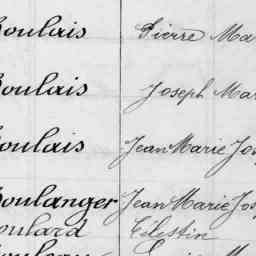 Boulais Pierre Ma
Boulais Joseph Mar
Boulais Jean Marie Jos
Boulanger Jean Marie Jos
Boulard Célestin